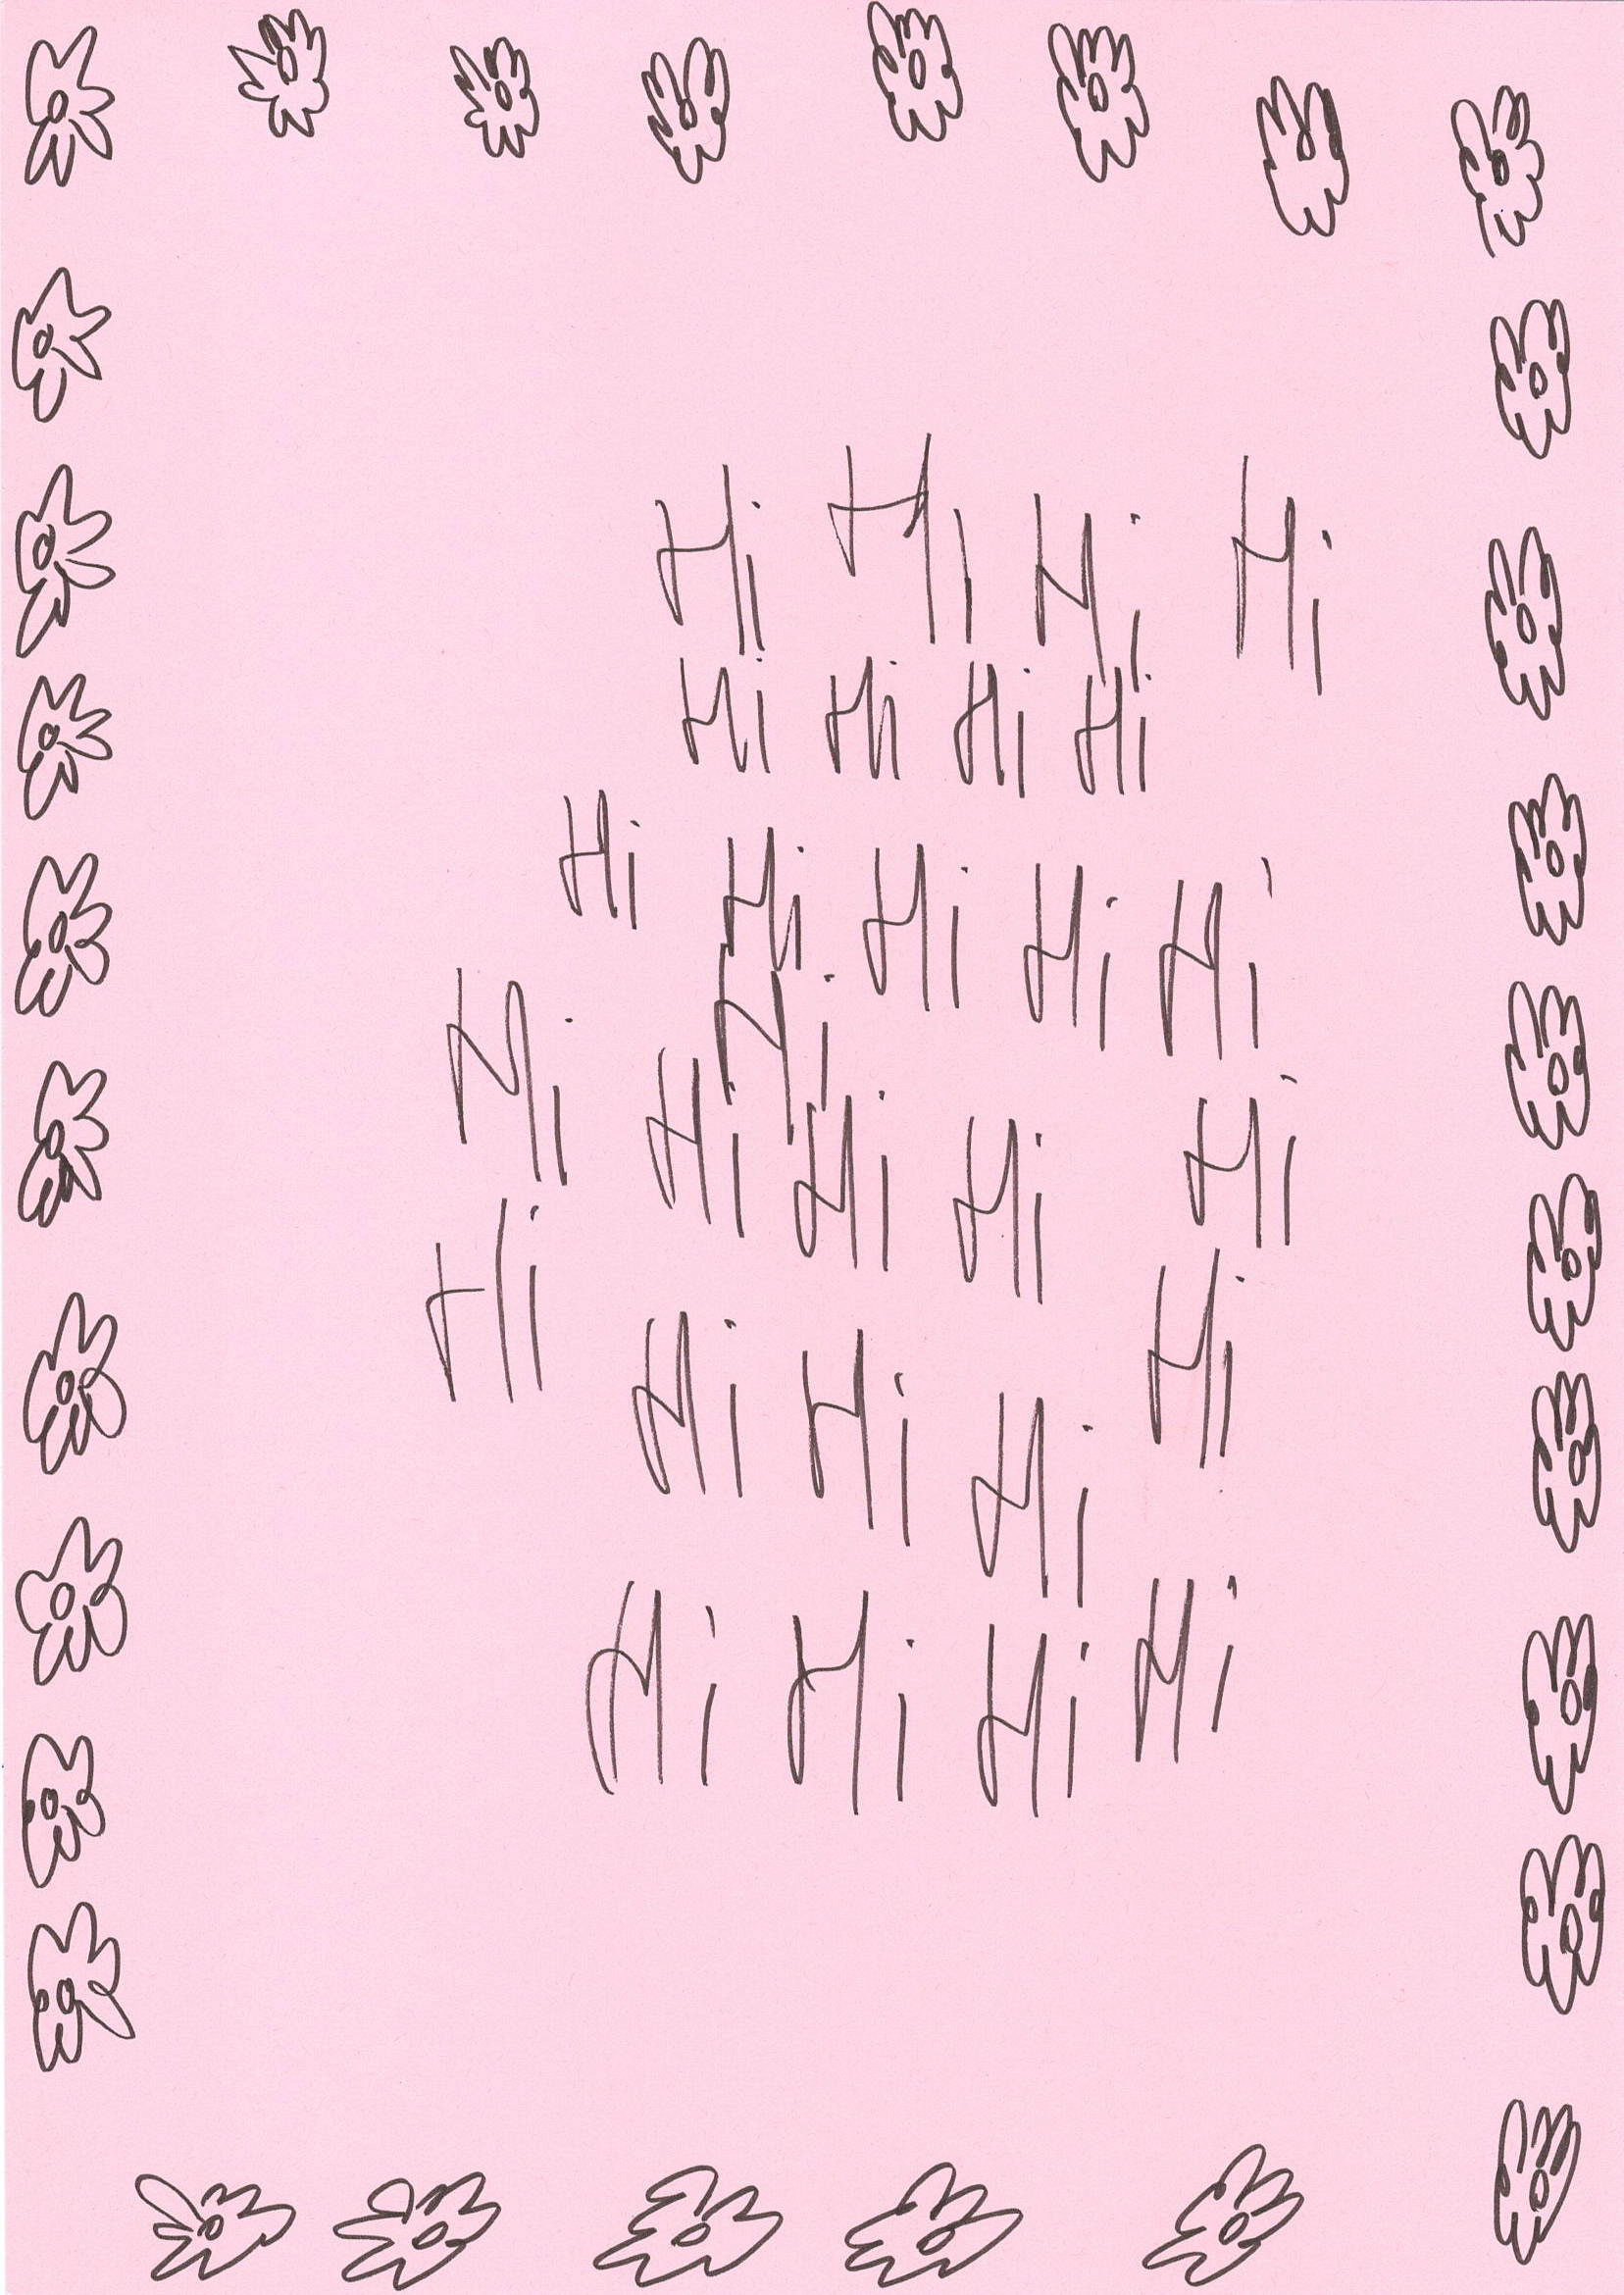 Hi Hi Hi Hi
Hi Hi Hi Hi
Hi Hi Hi Hi Hi
Hi Hi
Hi Hi Hi Hi
Hi Hi
Hi Hi Hi
Hi Hi Hi Hi